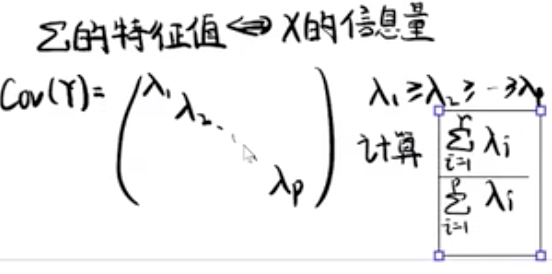 Σ的特征值⇔X的信息量
Cov(Y)= (λ₁ λ₂ ⋱ λₚ) λ₁≥λ₂≥…≥λₚ
计算 \frac{\sum_{i=1}^{r} λ_i}{\sum_{i=1}^{p} λ_i}